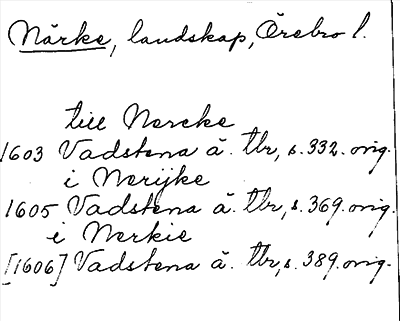 Närke, landskap, Örebro l.
till Nercke
1603 Vadstena ä. tbr, s. 332. orig.
i Nerijke
1605 Vadstena ä. tbr, s. 369. orig.
i Nerkie
[1606] Vadstena ä. tbr, s. 389. orig.